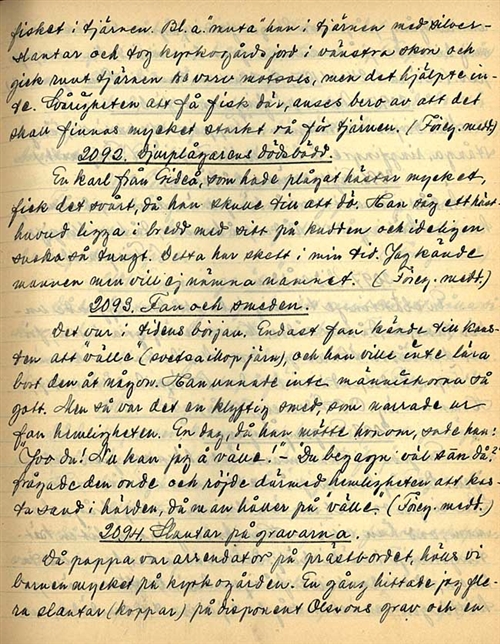 fisket i tjärnen. Bl.a. "muta" han i tjärnen med silver-
slantar och tog kyrkogårdsjord i vänstra skon och
gick runt tjärnen varv motsols, men det hjälpte in-
te. Svårigheten att få fisk där, anses bero av att det
skall finnas mycket starkt rå för tjärnen. (Föreg. medd.)
2092. Djurplågarens dödsbädd.
En karl från Gideå, som hade plågat hästar mycket,
fick det svårt, då han skulle till att dö. Han såg ett häst-
huvud ligga i bredd med sitt på kudden och ideligen
sucka så tungt. Detta har skett i min tid. Jag kände
mannen men vill ej nämna namnet. (Föreg. medd.)
2093. Fan och smeden.
Det var i tidens början. Endast fan kände till kons-
ten att "välla" (svetsa ihop järn), och han ville inte lära
bort den åt någon. Han unnade inte människorna så
gott. Men så var det en klyftig smed, som narrade ur
fan hemligheten. En dag, då han mötte honom, sade han:
"Joo du! Nu kan jag å välle!" – "Du begagn väl sån då?"
frågade den onde och röjde därmed hemligheten att kas-
ta sand i härden, då man håller på "välle". (Föreg. medd.)
2094. Slantar på gravarna.
Då pappa var arrendator på prästbordet, höllo vi
barnen mycket på kyrkogården. En gång hittade jag fle-
ra slantar (koppar) på disponent Olsvons grav och en